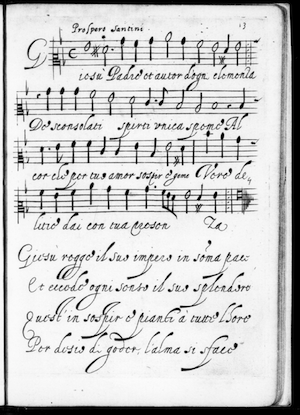 Prospero Santini
13
Giesu Padre et autor d'ogn clementia
Desconsolati spirti vnica speme Al
cor che per tuo amor sospir e geme Vere de-
litie dai con tua presen Za
Giesu regge il suo impero in soma pac
Et eccede ogni sento il suo splendore
Quest' in sospir e pianti à tutte l'hore
Per desio di goder, l'alma si sface